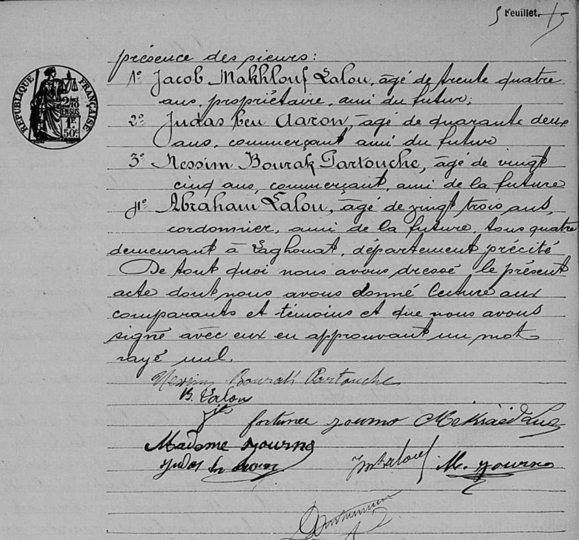 5 Feuillet. 15
RÉPUBLIQUE FRANÇAISE
présence des sieurs :
1º Jacob Makhlouf Lalou, âgé de trente quatre
ans, propriétaire, ami du futur ;
2º Judas ben Aaron, âgé de quarante deux
ans, commerçant ami du futur
3º Nessim Bourak Partouche, âgé de vingt
cinq ans, commerçant, ami de la future
4º Abraham Lalou, âgé de vingt trois ans,
cordonnier, ami de la future, tous quatre
demeurant à Laghouat, département précité
De tout quoi nous avons dressé le présent
acte dont nous avons donné lecture aux
comparants et témoins et que nous avons
signé avec eux en approuvant un mot
rayé nul.
Nessim Bourak Partouche
Lalou
fortunée journo
Madame journo
M. journo